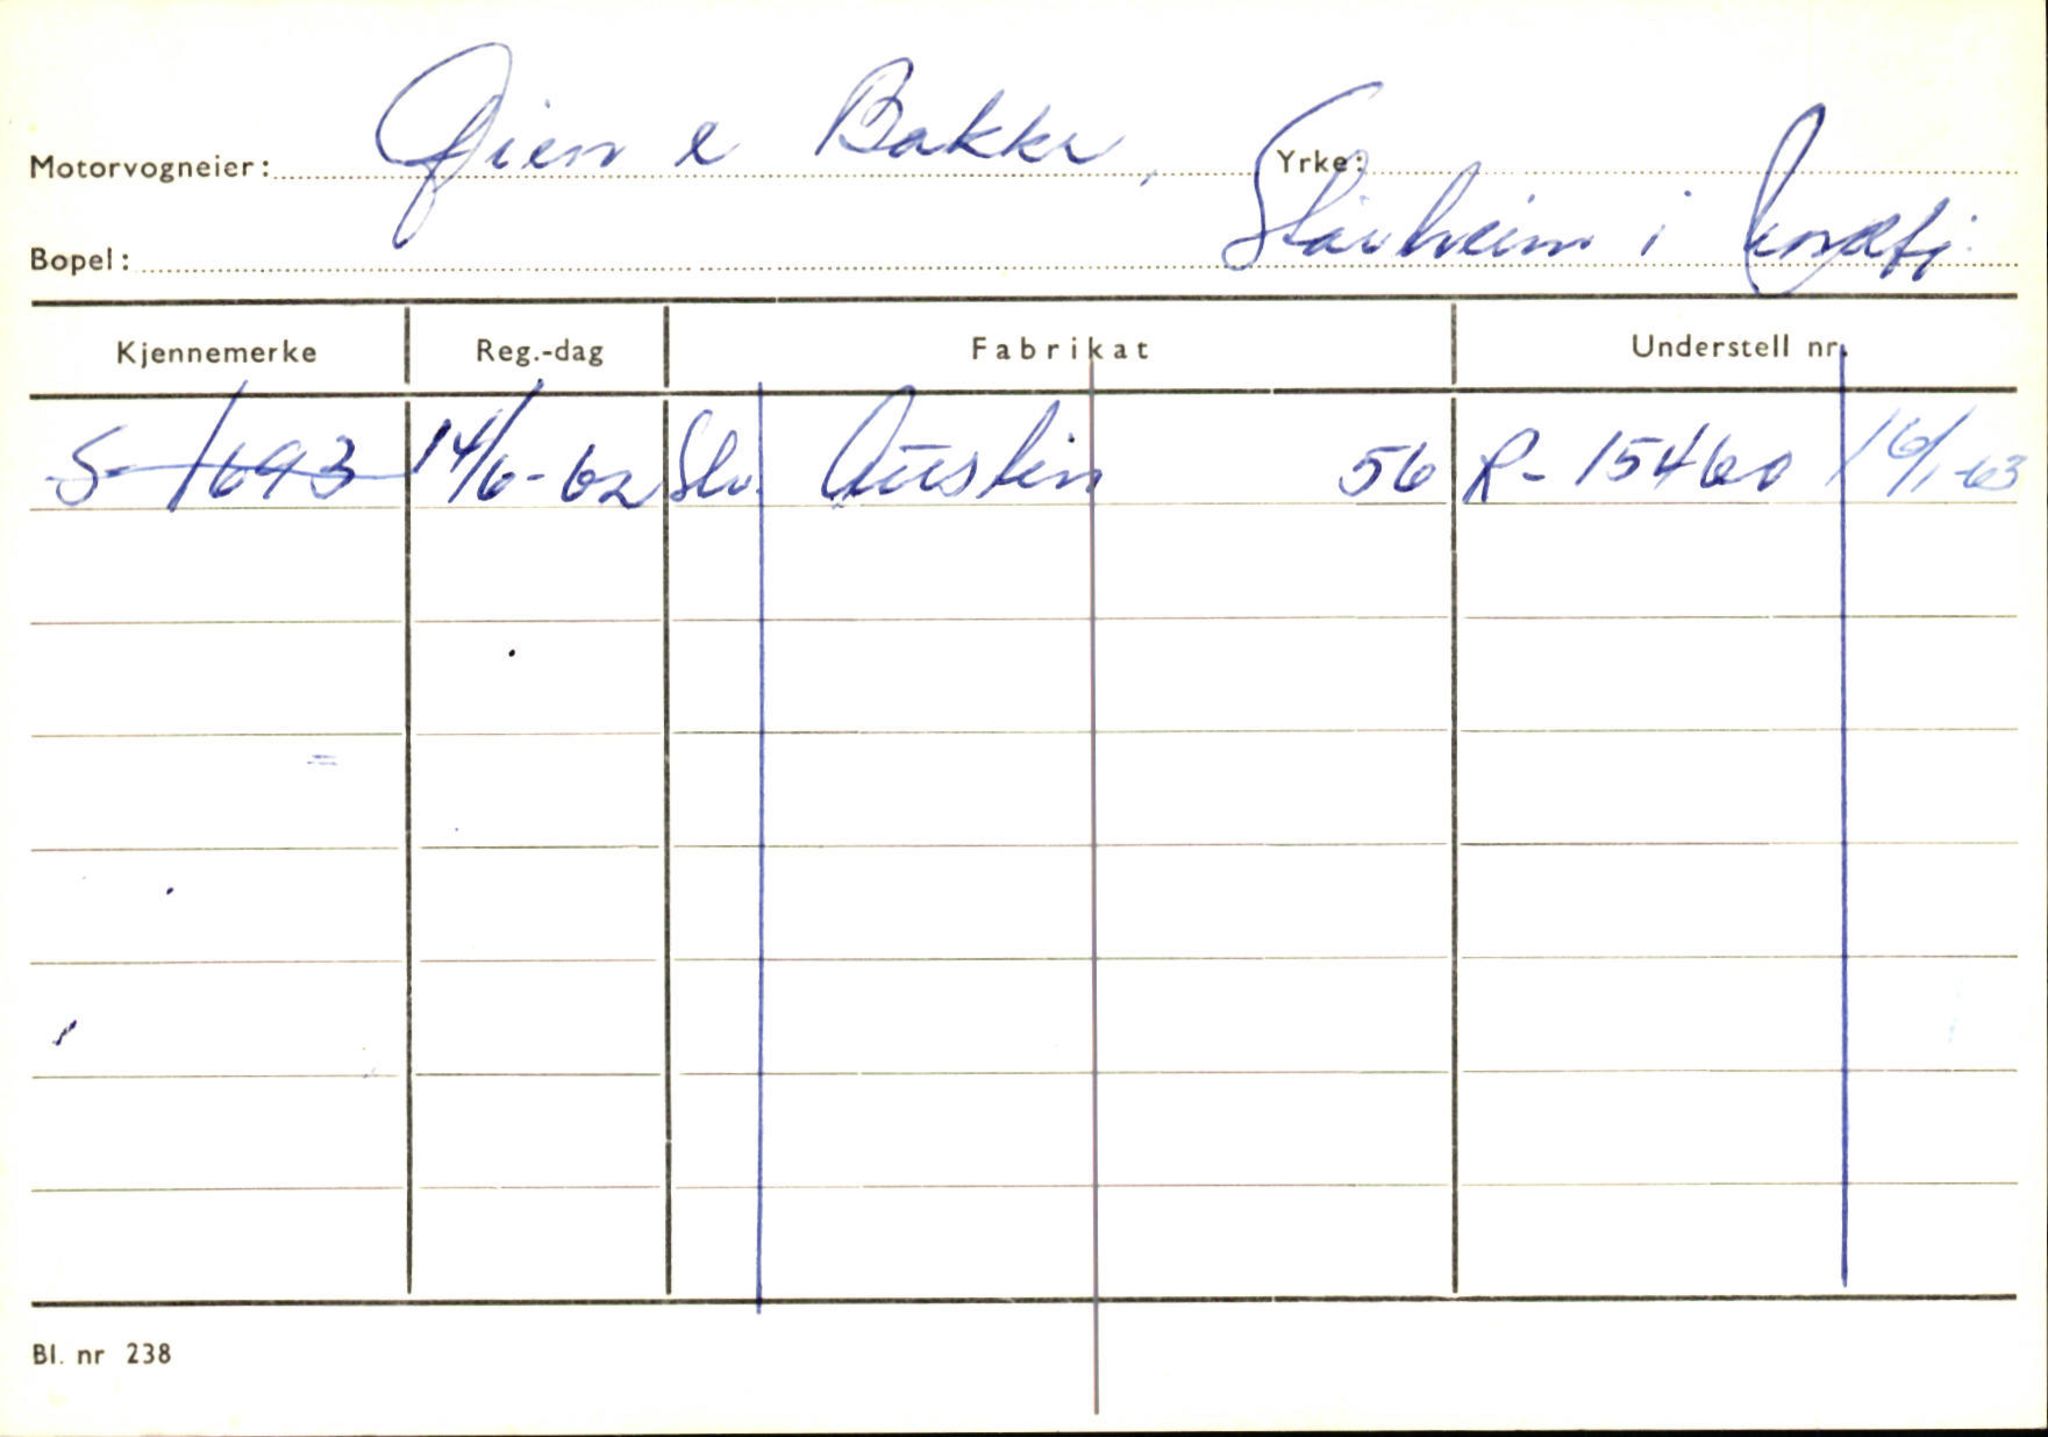 Motorvogneier: Øien & Bakke, Yrke:
Bopel: Stårheim i Nordfj.
Kjennemerke Reg.-dag Fabrikat Understell nr.
S-1693 14/6-62 Stv. Austin 56 R-15460 16/1-63
Bl. nr 238